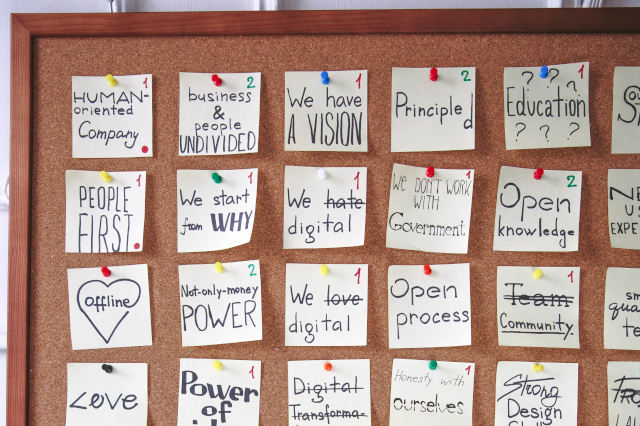 1
HUMAN-
oriented
Company
2
business
&
people
UNDIVIDED
1
We have
A VISION
2
Principled
1
? ? ?
Education
? ? ?
1
PEOPLE
FIRST
1
We start
from WHY
1
We hate
digital
1
WE DON'T WORK
WITH
Government
2
Open
knowledge
offline
2
Not-only-money
POWER
1
We love
digital
Open
process
1
Team
Community
Love
1
Power
of
1
Digital
Transforma-
1
Honesty with
ourselves
Strong
Design